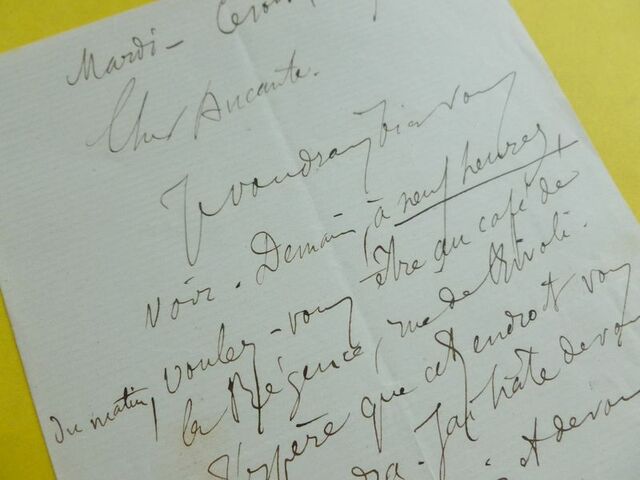 Mardi -
Cher Ancante.
Je voudrais bien vous
voir. Demain, à neuf heures
du matin, voulez-vous être au café de
la Régence, rue de Rivoli.
J'espère que cet endroit vous
J'ai hâte de vous
et de vous